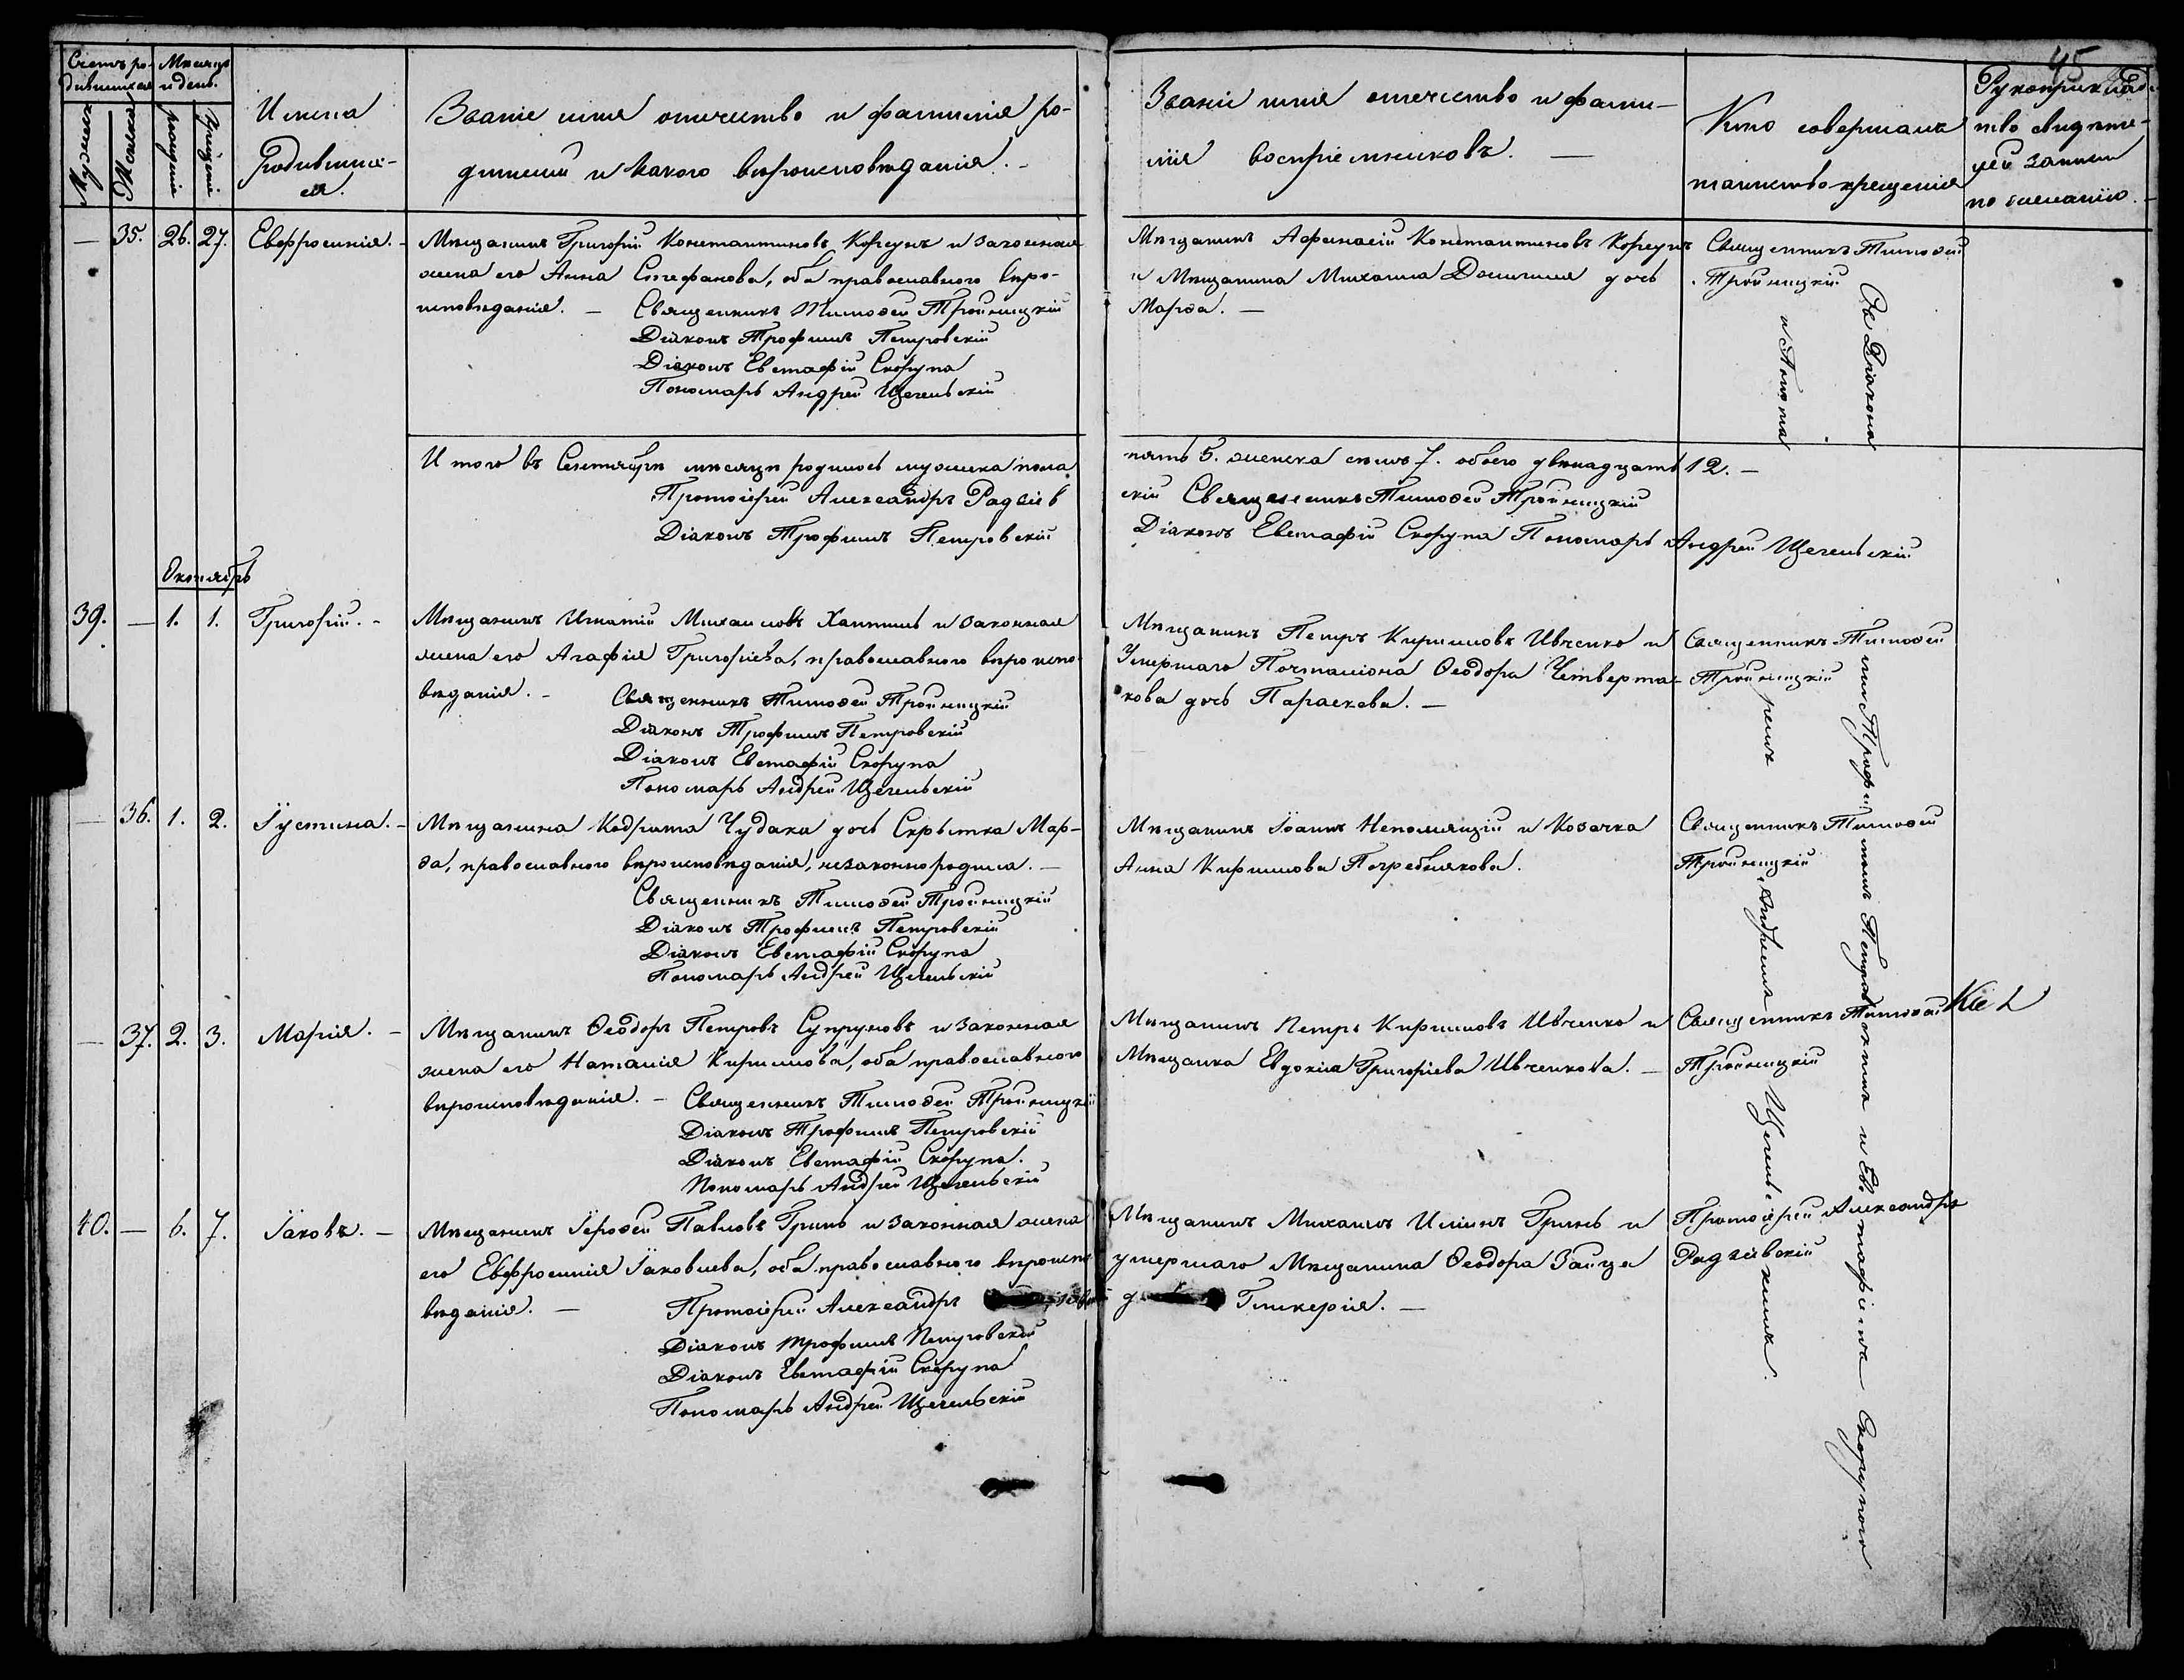 45
Счетъ ро-
дившихся
Мѣсяцъ
и день.
Мужеска
Женска
рожденія
крещенія
Имена
Родивших-
ся.
Званіе имя отчество и фамилія ро-
дителей и какого вѣроисповѣданія. -
Званіе имя отечество и фами-
лія воспріемниковъ. —
Кто совершалъ
таинство крещенія
Рукоприклад-
ство свидѣте-
лей записи
по желанію.
— 35. 26. 27. Евфросинія. -
Мѣщанинъ Григорій Константиновъ Корсунъ и законная
жена его Анна Стефанова, оба православного вѣро-
исповѣданія. — Священникъ Тимоѳей Тройницкій
Діаконъ Трофимъ Петровскій
Діаконъ Евстафій Скорупа
Пономарь Андрей Щегельскій
Мѣщанинъ Афанасій Константиновъ Корсунъ
и Мѣщанина Михаила дочь
Марѳа. —
Священникъ Тимоѳей
Тройницкій
Итого въ Сентябрѣ мѣсяцѣ родилось мужеска пола
пять 5. женска семь 7. обоего двѣнадцать 12. —
Протоіерей Александръ Радзіев
скій Священникъ Тимоѳей Тройницкій
Діаконъ Трофимъ Петровскій
Діаконъ Евстафій Скорупа Пономарь Андрей Щегельскій
Октябрь
39. — 1. 1. Григорій. -
Мѣщанинъ Игнатій Михаиловъ и законная
жена его Агафія Григоріева, православного вѣроиспо-
вѣданія. - Священникъ Тимоѳей Тройницкій
Діаконъ Трофимъ Петровскій
Діаконъ Евстафій Скорупа
Пономарь Андрей Щегельскій
Мѣщанинъ Петръ Кирилловъ Ивченко и
Умершаго Почталіона Ѳеодора Четверта-
кова дочь Параскева. —
Священникъ Тимоѳей
Тройницкій
— 36. 1. 2. Іустина. -
Мѣщанина Кодрата Чудака дочь Мар-
ѳа, православного вѣроисповѣданія, незаконно родила. —
Священникъ Тимоѳей Тройницкій
Діаконъ Трофимъ Петровскій
Діаконъ Евстафій Скорупа
Пономарь Андрей Щегельскій
Мѣщанинъ Іоаннъ Непомнящій и Козачка
Анна Кириллова Погребнякова.
Священникъ Тимоѳей
Тройницкій
— 37. 2. 3. Марія. -
Мѣщанинъ Ѳеодоръ Петровъ Супруновъ и законная
жена его Наталія Кириллова, оба православного
вѣроисповѣданія. - Священникъ Тимоѳей Тройницкій
Діаконъ Трофимъ Петровскій
Діаконъ Евстафій Скорупа.
Пономарь Андрей Щегельскій
Мѣщанинъ Петръ Кирилловъ Ивченко и
Мѣщанка Евдокія Григоріева Ивченкова. —
Священникъ Тимоѳей
Тройницкій
40. — 6. 7. Іаковъ. -
Мѣщанинъ Іероѳей Павловъ Гринь и законная жена
его Евфросинія Іаковлева, оба православного вѣроиспо-
вѣданія. — Протоіерей Александръ
Діаконъ Трофимъ Петровскій
Діаконъ Евстафій Скорупа
Пономарь Андрей Щегельскій
Мѣщанинъ Михаилъ Ильинъ Гринь и
умершаго Мѣщанина Ѳеодора Зайца
Гликерія. —
Протоіерей Александръ
Радзіевскій
Съ Діакона ми Трофимомъ Петровскимъ и Евстафіемъ Скорупою
и Андреемъ Щегельскимъ.